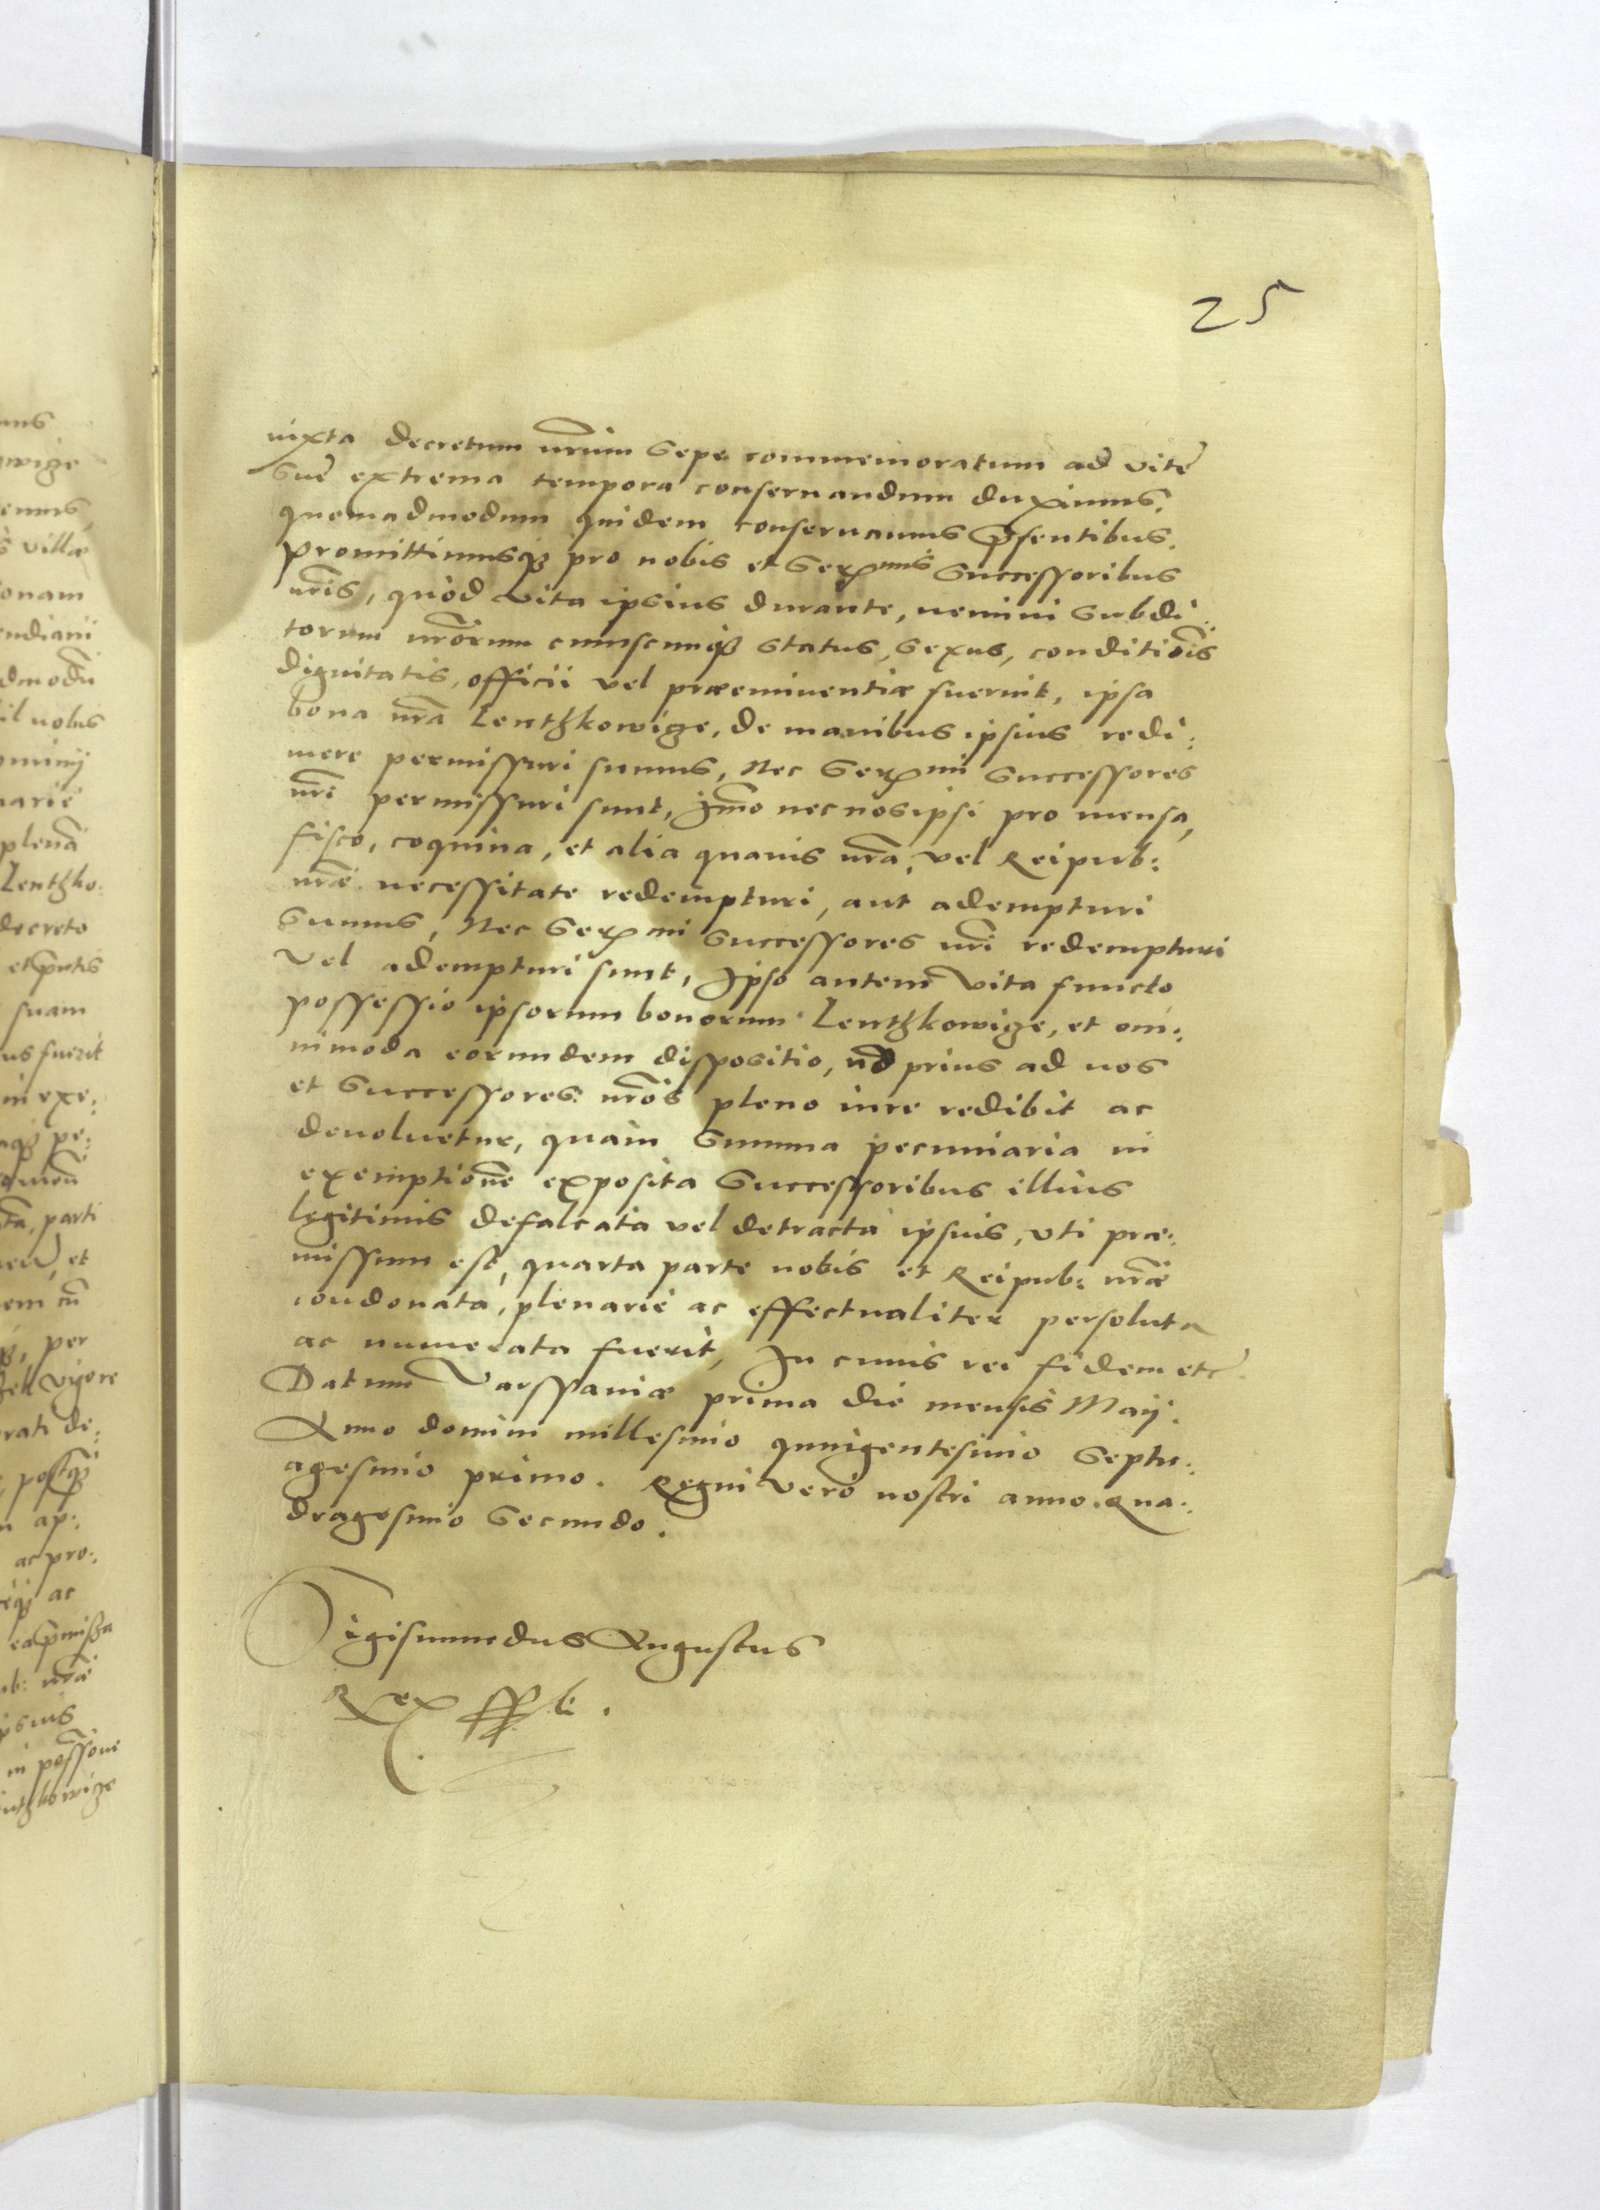 25
iuxta decretum nr̃um sepe commemoratum ad vite
sue extrema tempora conseruandum duximus,
quemadmodum quidem conseruamus p̃sentibus.
Promittimusq₃ pro nobis et Serᵐⁱˢ Successoribus
nr̃is, quòd vita ipsius durante, nemini subdi:
torum nr̃orum cuiuscunq₃ status, sexus, conditiõis
dignitatis, officii vel præeminentiæ fuerint, ipsa
bona nr̃a Lenthkowize, de manibus ipsius redi:
mere permissuri sumus, Nec Serᵐⁱ Successores
nr̃i permissuri sunt, Im̃o nec nosipsi pro mensa,
fisco, coquina, et alia quauis nr̃a, vel Reipub:
nr̃æ necessitate redempturi, aut adempturi
sumus, Nec Serᵐⁱ Successores nr̃i redempturi
vel adempturi sunt, Ipso autem vita functo
possessio ipsorum bonorum Lenthkowize, et om:
nimoda eorundem dispositio, nõ prius ad nos
et Successores nr̃os pleno iure redibit ac
deuoluetur, quàm summa pecuniaria in
exemptionẽ exposita Successoribus illius
legitimis defalcata vel detracta ipsius, vti præ:
missum est, quarta parte nobis et Reipub: nr̃æ
condonata, plenarie ac effectualiter persoluta
ac numerata fuerit, In cuius rei fidem etc̃.
Datum Varssauiæ prima die mensis Maij.
Anno domini millesimo quingentesimo septu:
agesimo primo. Regni vero nostri anno Qua:
dragesimo secundo.
Sigismundus Augustus
Rex sst.